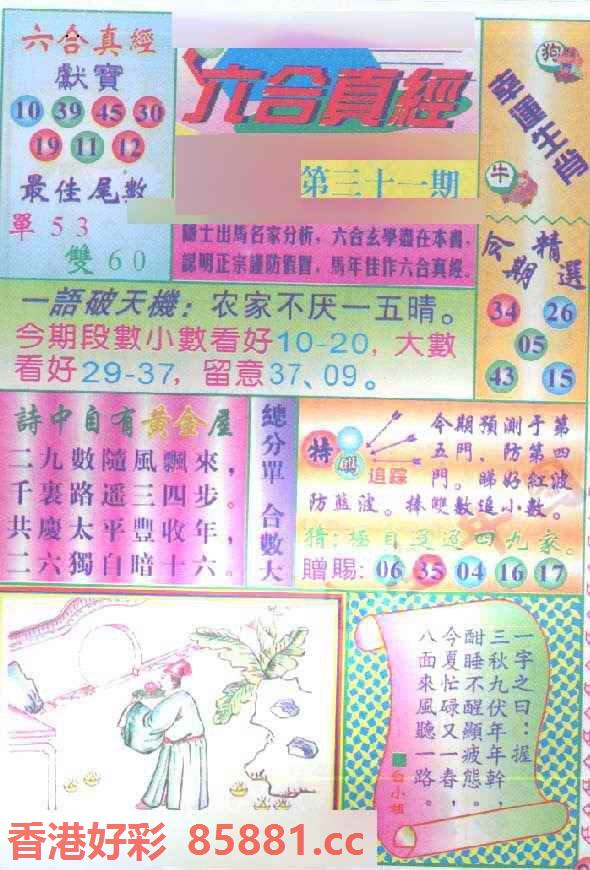 六合真經
獻寶
10 39 45 30
19 11 12
最佳尾數
單 5 3
雙 6 0
六合真經
第三十一期
士出馬名家分析，六合玄學盡在本書，
認明正宗謹防假冒，馬年佳作六合真經。
幸運生肖
狗
牛
今期精選
34 26
05
43 15
一語破天機：农家不厌一五晴。
今期段數小數看好10-20，大數
看好29-37，留意37、09。
詩中自有黃金屋
二九數隨風飄來，
千裏路遥三四步。
共慶太平豐收年，
二六獨自暗十六。
總分單 合數大
特 追踪
今期預測于第
五門、防第四
門。睇好紅波
防藍波。捧雙數追小數。
猜：極目遥 四九家。
贈賜：06 35 04 16 17
一字之曰：握
三秋九伏年年幹，
酣睡不醒顯疲態。
今夏忙碌又一春，
八面來風聽一路。
白小姐
香港好彩 85881.cc